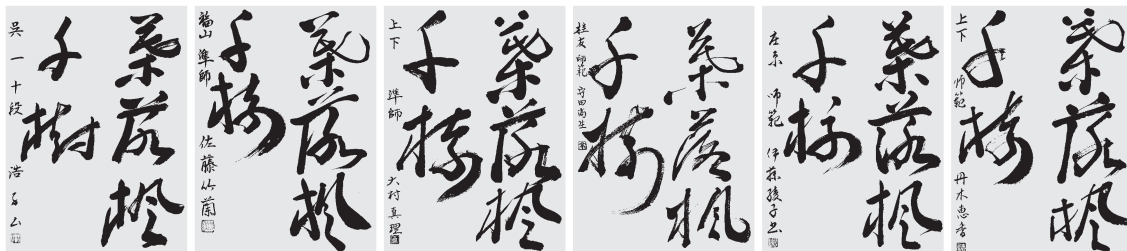 葉落楓
千樹
呉 一十段 浩
葉落楓
千樹
福山 準師 佐藤竹蘭
葉落楓
千樹
上下 準師 大村真理
葉落楓
千樹
師範
葉落楓
千樹
庄原 師範 伊藤綾子書
葉落楓
千樹
上下 師範 丹木恵香